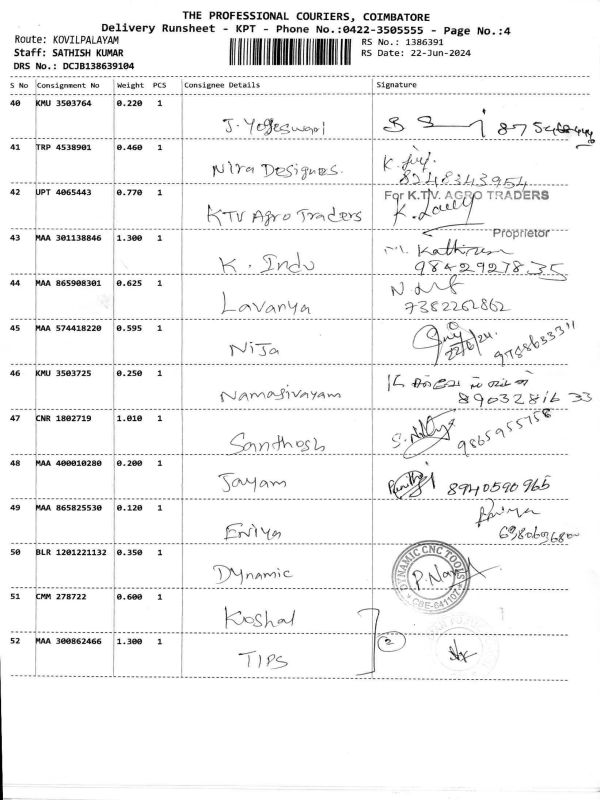 THE PROFESSIONAL COURIERS, COIMBATORE
Delivery Runsheet - KPT - Phone No.:0422-3505555 - Page No.:4
Route: KOVILPALAYAM RS No.: 1386391
Staff: SATHISH KUMAR RS Date: 22-Jun-2024
DRS No.: DCJB138639104
S No Consignment No Weight PCS Consignee Details Signature
40 KMU 3503764 0.220 1
J. Yogeswari
41 TRP 4538901 0.460 1
Nira Designes.
8248343954
42 UPT 4065443 0.770 1
For K.TV. AGRO TRADERS
KTV Agro Traders
Proprietor
43 MAA 301138846 1.300 1
K. Indu
9842927835
44 MAA 865908301 0.625 1
Lavanya 7382262862
45 MAA 574418220 0.595 1
Nija 22/6/24.
46 KMU 3503725 0.250 1
Namasivayam 8903281633
47 CNR 1802719 1.010 1
Santhosh 9865955758
48 MAA 400010280 0.200 1
Jayam 8940590965
49 MAA 865825530 0.120 1
Eniya
50 BLR 1201221132 0.350 1
Dynamic DYNAMIC CNC TOOLS CBE-641107
51 CMM 278722 0.600 1
Koshal
52 MAA 300862466 1.300 1
TIPS 2